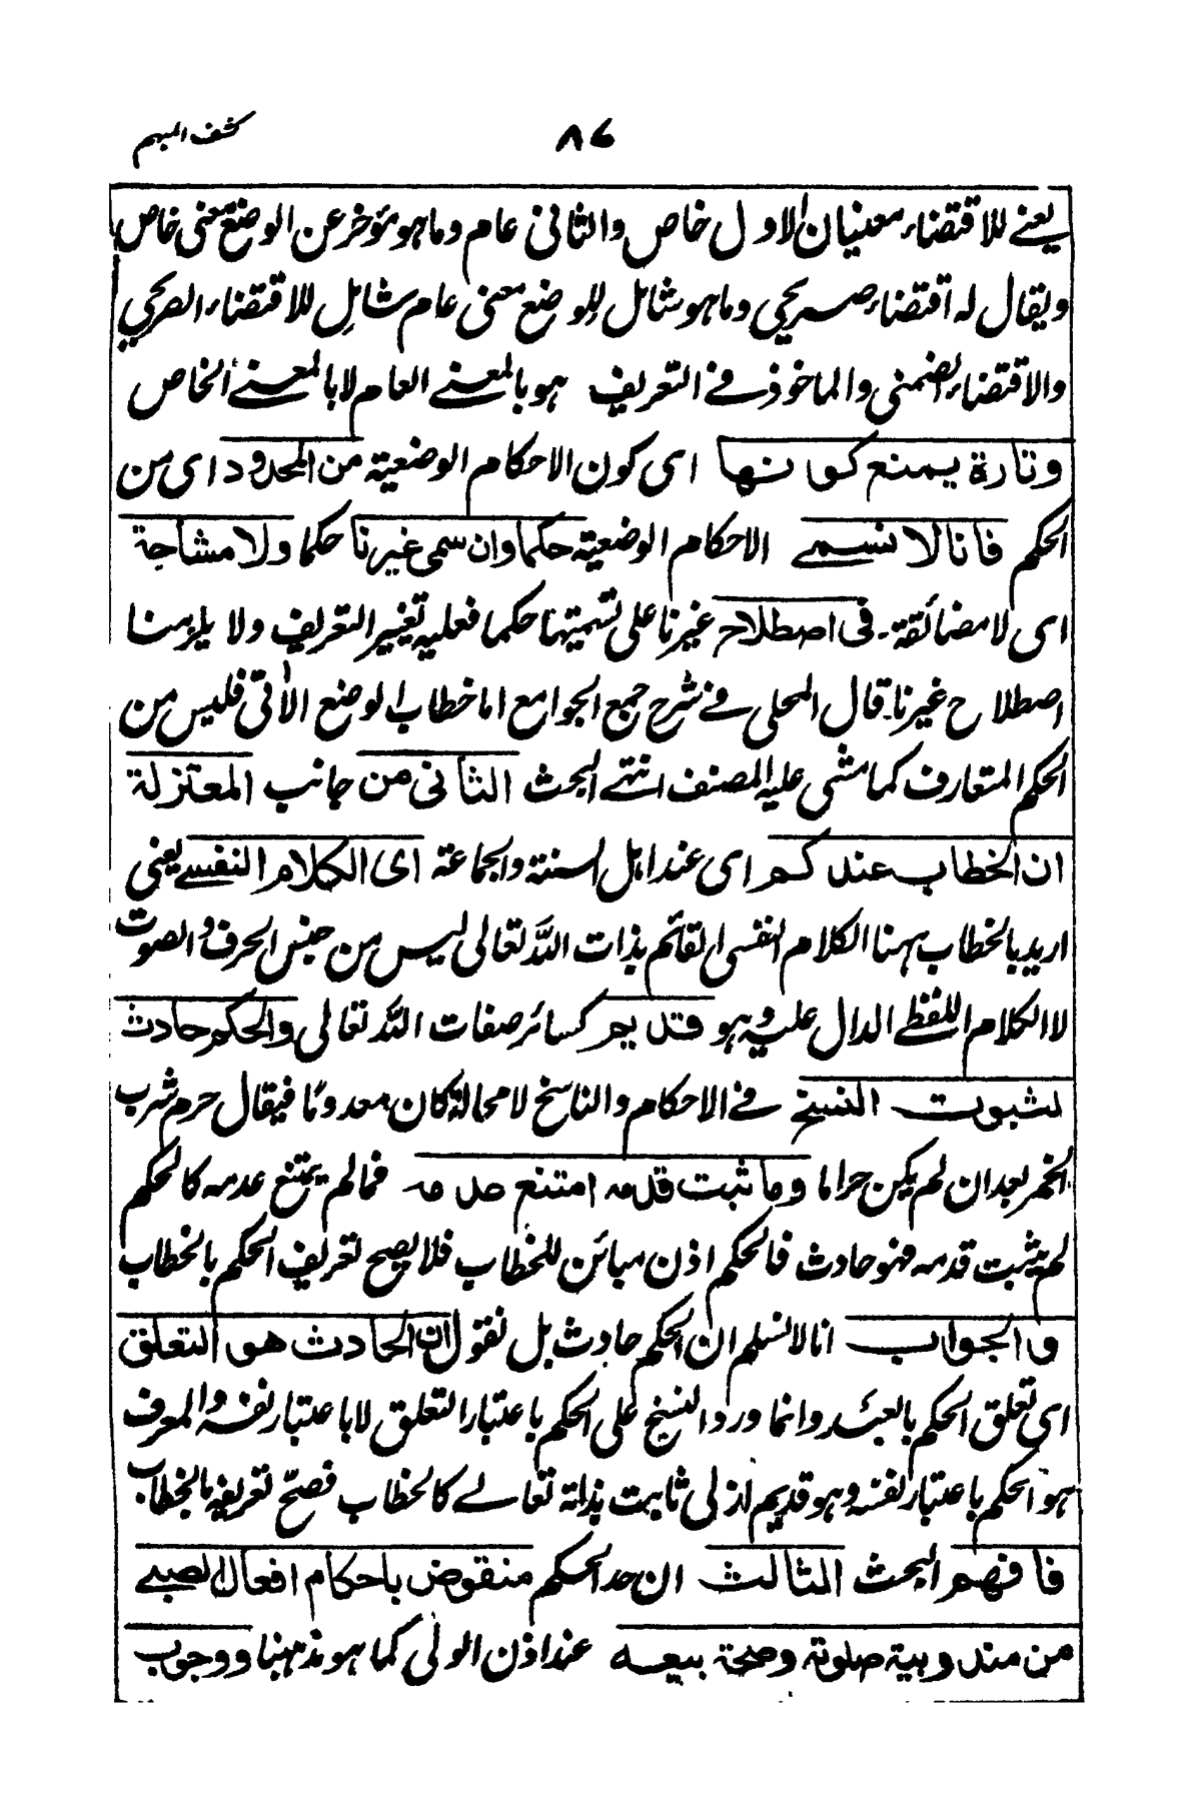 كشف المبهم
٨٦
يعنے للاقتضاء معنيان الاول خاص والثانى عام وما هو مؤخر عن الوضع معنى خاص
ويقال له اقتضاء صريحى وما هو شامل للوضع معنى عام شامل للاقتضاء الصريحى
والاقتضاء الضمنى والماخوذ فے التعريف هو بالمعنے العام لا بالمعنے الخاص
وتارة يمنع كونها اى كون الاحكام الوضعية من المحدود اى من
الحكم فانا لا نسمے الاحكام الوضعية حكما وان سمى غيرنا حكما ولا مشاحة
اى لا مضائقة فى اصطلاح غيرنا على تسميتها حكما فعليه تغيير التعريف ولا يلزمنا
اصطلاح غيرنا قال المحلى فے شرح جمع الجوامع اما خطاب الوضع الآتى فليس من
الحكم المتعارف كما مشى عليه المصنف انتهے البحث الثانى من جانب المعتزلة
ان الخطاب عندكم اى عند اهل السنة والجماعة اى الكلام النفسے يعنى
اريد بالخطاب ههنا الكلام النفسى القائم بذات اللّٰه تعالى ليس من جنس الحرف والصوت
لا الكلام اللفظے الدال عليه وهو قديم كسائر صفات اللّٰه تعالى والحكم حادث
لثبوت النسخ فے الاحكام والناسخ لا محالة كان معدومًا فيقال حرم شرب
الخمر بعد ان لم يكن حراما وما ثبت قدمه امتنع عدمه فما لم يمتنع عدمه كالحكم
لم يثبت قدمه فهو حادث فالحكم اذن مبائن للخطاب فلا يصح تعريف الحكم بالخطاب
والجواب انا لا نسلم ان الحكم حادث بل نقول ان الحادث هو التعلق
اى تعلق الحكم بالعبد وانما ورد النسخ على الحكم باعتبار التعلق لا باعتبار نفسه والمعرف
هو الحكم باعتبار نفسه وهو قديم ازلى ثابت بذاته تعالے كالخطاب فصحّ تعريفه بالخطاب
فافهم البحث الثالث ان حد الحكم منقوض باحكام افعال الصبے
من مندوبية صلوته وصحة بيعه عند اذن الولى كما هو مذهبنا ووجوب